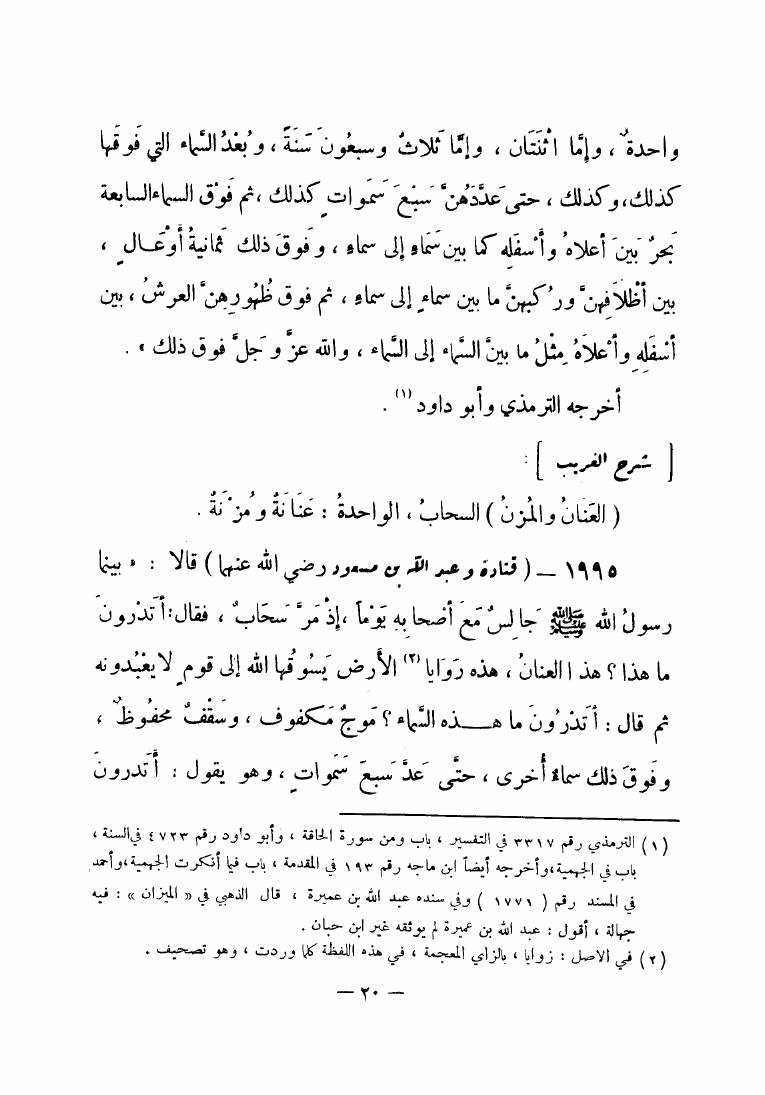 واحدةٌ ، وإِمَّا اثْنَتَان ، وإمَّا ثلاثٌ وسبعُون سَنَةً ، وبُعْدُ السَّماء التي فَوقَها
كذلك، وكذلك ، حتى عَدَّدَهُنَّ سَبْعَ سَمَواتٍ كذلك ، ثم فَوْق السماء السابعة
بَحرٌ بَينَ أعلاهُ وأَسفَلِه كما بين سَمَاءٍ إلى سماءٍ ، وفَوقَ ذلك ثَمانيةُ أَوْعَـالٍ ،
بين أَظْلَافِهِنَّ ورُكبهنَّ ما بين سماءٍ إلى سماءٍ ، ثم فوق ظُهُورِهِنَّ العرشُ ، بين
أسْفَلِهِ وأعْلاهُ مِثْلُ ما بينَ السَّماء إلى السَّماء ، والله عزَّ وجَلَّ فوق ذلك » .
أخرجه الترمذي وأبو داود (١) .
[ شرح الغريب ] :
( العَنَانُ والمُزنُ ) السحابُ ، الواحدةُ : عَنَانَةٌ ومُزْنَةٌ .
١٩٩٥ – ( قتادة وعبد الله بن مسعود رضي الله عنهما ) قالا : « بينما
رسولُ الله ﷺ جَالِسٌ مَعَ أصْحابِهِ يَوْماً ، إذْ مَرَّ سَحَابٌ ، فقال: أَتَدْرونَ
ما هذا ؟ هذا العنانُ ، هذه رَوَايا (٢) الأرض يَسُوقُها الله إلى قومٍ لا يَعْبُدونه
ثم قال : أتَدْرُونَ ما هــذه السَّماء ؟ مَوجٌ مَكفوف ، وسَقْفٌ محفُوظٌ ،
وفَوقَ ذلك سماءٌ أُخرى ، حتَّى عَدَّ سَبعَ سَمَواتٍ ، وهو يقول : أَتَدرونَ
(١) الترمذي رقم ٣٣١٧ في التفسير ، باب ومن سورة الحاقة ، وأبو داود رقم ٤٧٢٣ في السنة ،
باب في الجهمية، وأخرجه أيضاً ابن ماجه رقم ١٩٣ في المقدمة ، باب فيما أنكرت الجهمية، وأحمد
في المسند رقم ( ١٧٧١ ) وفي سنده عبد الله بن عميرة ، قال الذهبي في « الميزان » : فيه
جهالة ، أقول : عبد الله بن عميرة لم يوثقه غير ابن حبان .
(٢) في الاصل : زوايا ، بالزاي المعجمة ، في هذه اللفظة كلما وردت ، وهو تصحيف .
– ٢٠ –